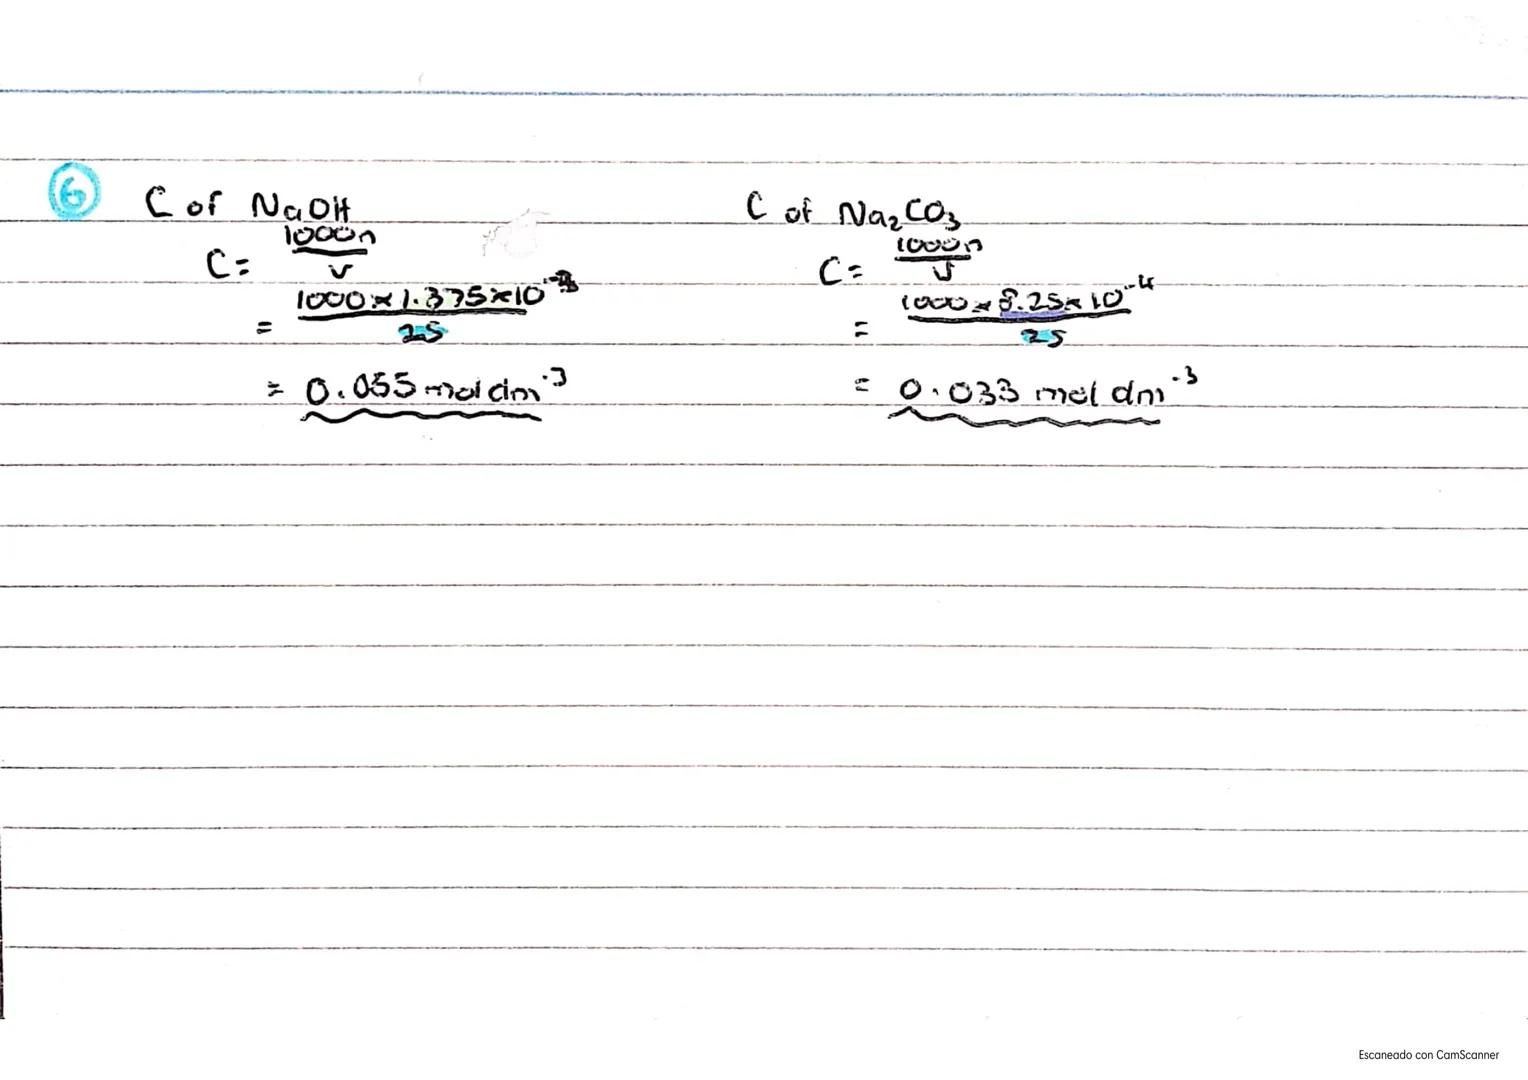 6
C of NaOH
C = 1000n / v
= 1000 × 1.375×10⁻³ / 25
= 0.055 mol dm⁻³
C of Na₂CO₃
C = 1000n / v
= 1000 × 8.25×10⁻⁴ / 25
= 0.033 mol dm⁻³
Escaneado con CamScanner